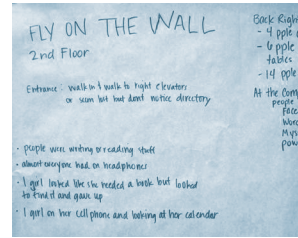 FLY ON THE WALL
2nd Floor
Entrance: walk in & walk to right elevators
or scan but but dont notice directory
• people were writing or reading stuff
• almost everyone had on headphones
• 1 girl looked like she needed a book but looked
to find it and gave up
• 1 girl on her cell phone and looking at her calendar
Back Righ
- 4 pple
- 6 pple
tables
- 14 pple
At the Com
people
Face
Word
Mys
pow